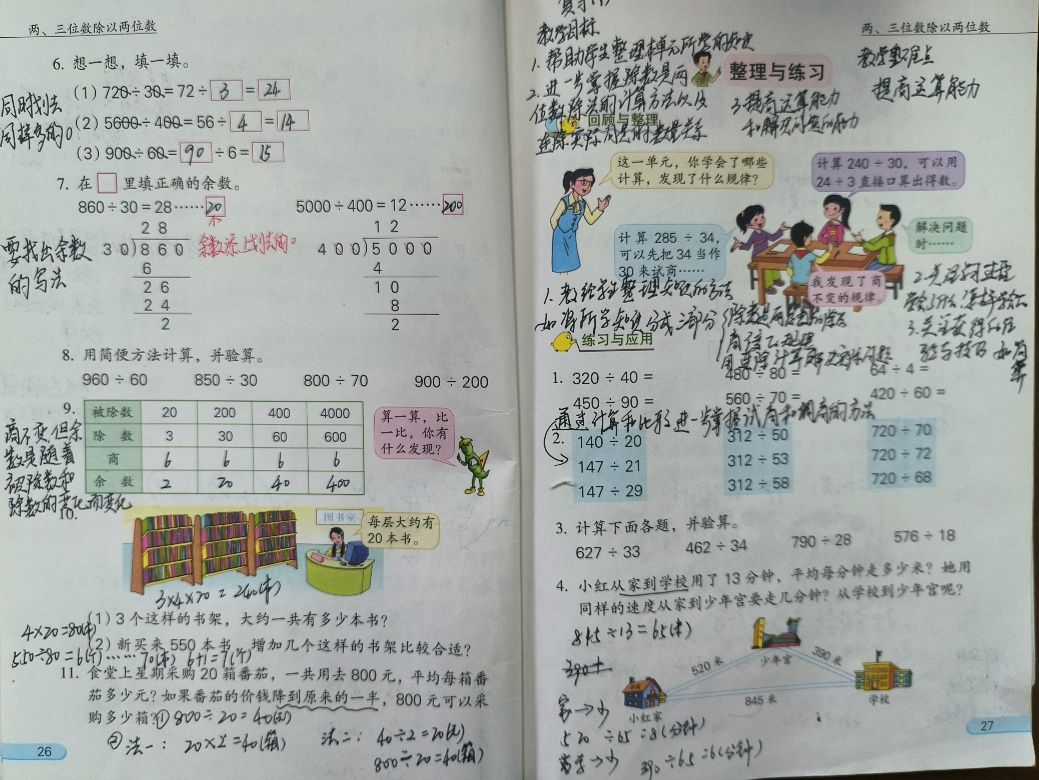 两、三位数除以两位数
6. 想一想，填一填。
(1) 720÷30=72÷3=24
(2) 5600÷400=56÷4=14
(3) 900÷60=90÷6=15
同时划去
同样多的0。
7. 在□里填正确的余数。
860÷30=28……20
5000÷400=12……200
2 8
30)860
6
2 6
2 4
2
1 2
400)5000
4
1 0
8
2
余数添上划去的0
要找出余数
的写法
8. 用简便方法计算，并验算。
960÷60 850÷30 800÷70 900÷200
9.
被除数 20 200 400 4000
除 数 3 30 60 600
商 6 6 6 6
余 数 2 20 40 400
算一算，比
一比，你有
什么发现？
商不变，但余
数是随着
被除数和
除数的变化而变化
10.
图书室
每层大约有
20本书。
3×4×20=240(本)
(1) 3个这样的书架，大约一共有多少本书？
4×20=80(本)
(2) 新买来550本书，增加几个这样的书架比较合适？
550÷80=6(个)……70(本) 6+1=7(个)
11. 食堂上星期采购20箱番茄，一共用去800元，平均每箱番
茄多少元？如果番茄的价钱降到原来的一半，800元可以采
购多少箱？
① 800÷20=40(元)
② 法一： 20×2=40(箱)
法二： 40÷2=20(元)
800÷20=40(箱)
26
两、三位数除以两位数
复习(1)
教学目标
1. 帮助学生整理本单元所学的知识
2. 进一步掌握除数是两
位数除法的计算方法以及
连除实际问题的数量关系
3. 提高运算能力
和解决问题的能力
教学重难点
提高运算能力
整理与练习
回顾与整理
这一单元，你学会了哪些
计算，发现了什么规律？
计算240÷30，可以用
24÷3直接口算出得数。
计算285÷34，
可以先把34当作
30来试商……
解决问题
时……
我发现了商
不变的规律。
1. 教给学生整理知识的方法
如将所学知识分成三部分
商不变规律
用连除计算解决实际问题
练习与应用
1. 320÷40= 480÷80= 64÷4=
450÷90= 560÷70= 420÷60=
通过计算和比较进一步掌握试商和调商的方法
2. 140÷20 312÷50 720÷70
147÷21 312÷53 720÷72
147÷29 312÷58 720÷68
3. 计算下面各题，并验算。
627÷33 462÷34 790÷28 576÷18
4. 小红从家到学校用了13分钟，平均每分钟走多少米？她用
同样的速度从家到少年宫要走几分钟？从学校到少年宫呢？
845÷13=65(米)
390+
家→少
520÷65=8(分钟)
学→少
390÷65=6(分钟)
少年宫
520米
390米
845米
小红家
学校
27